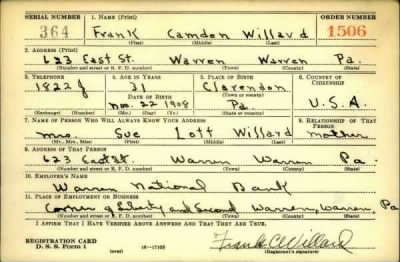 SERIAL NUMBER 1. NAME (Print) ORDER NUMBER
364 Frank Camdon Willard 1506
(First) (Middle) (Last)
2. ADDRESS (Print)
623 East St. Warren Warren Pa.
(Number and street or R. F. D. number) (Town) (County) (State)
3. TELEPHONE 4. AGE IN YEARS 5. PLACE OF BIRTH 6. COUNTRY OF CITIZENSHIP
1822 J 31 Clarendon
DATE OF BIRTH (Town or county)
Nov. 22 1908 Pa U.S.A.
(Exchange) (Number) (Mo.) (Day) (Yr.) (State or country)
7. NAME OF PERSON WHO WILL ALWAYS KNOW YOUR ADDRESS 8. RELATIONSHIP OF THAT PERSON
Mrs. Sue Lott Willard Mother
(Mr., Mrs., Miss) (First) (Middle) (Last)
9. ADDRESS OF THAT PERSON
623 East St. Warren Warren Pa.
(Number and street or R. F. D. number) (Town) (County) (State)
10. EMPLOYER'S NAME
Warren National Bank
11. PLACE OF EMPLOYMENT OR BUSINESS
Corner of Liberty and Second Warren, Warren, Pa
(Number and street or R. F. D. number) (Town) (County) (State)
I AFFIRM THAT I HAVE VERIFIED ABOVE ANSWERS AND THAT THEY ARE TRUE.
REGISTRATION CARD
D. S. S. Form 1 (over) Frank C Willard
(Registrant's signature)